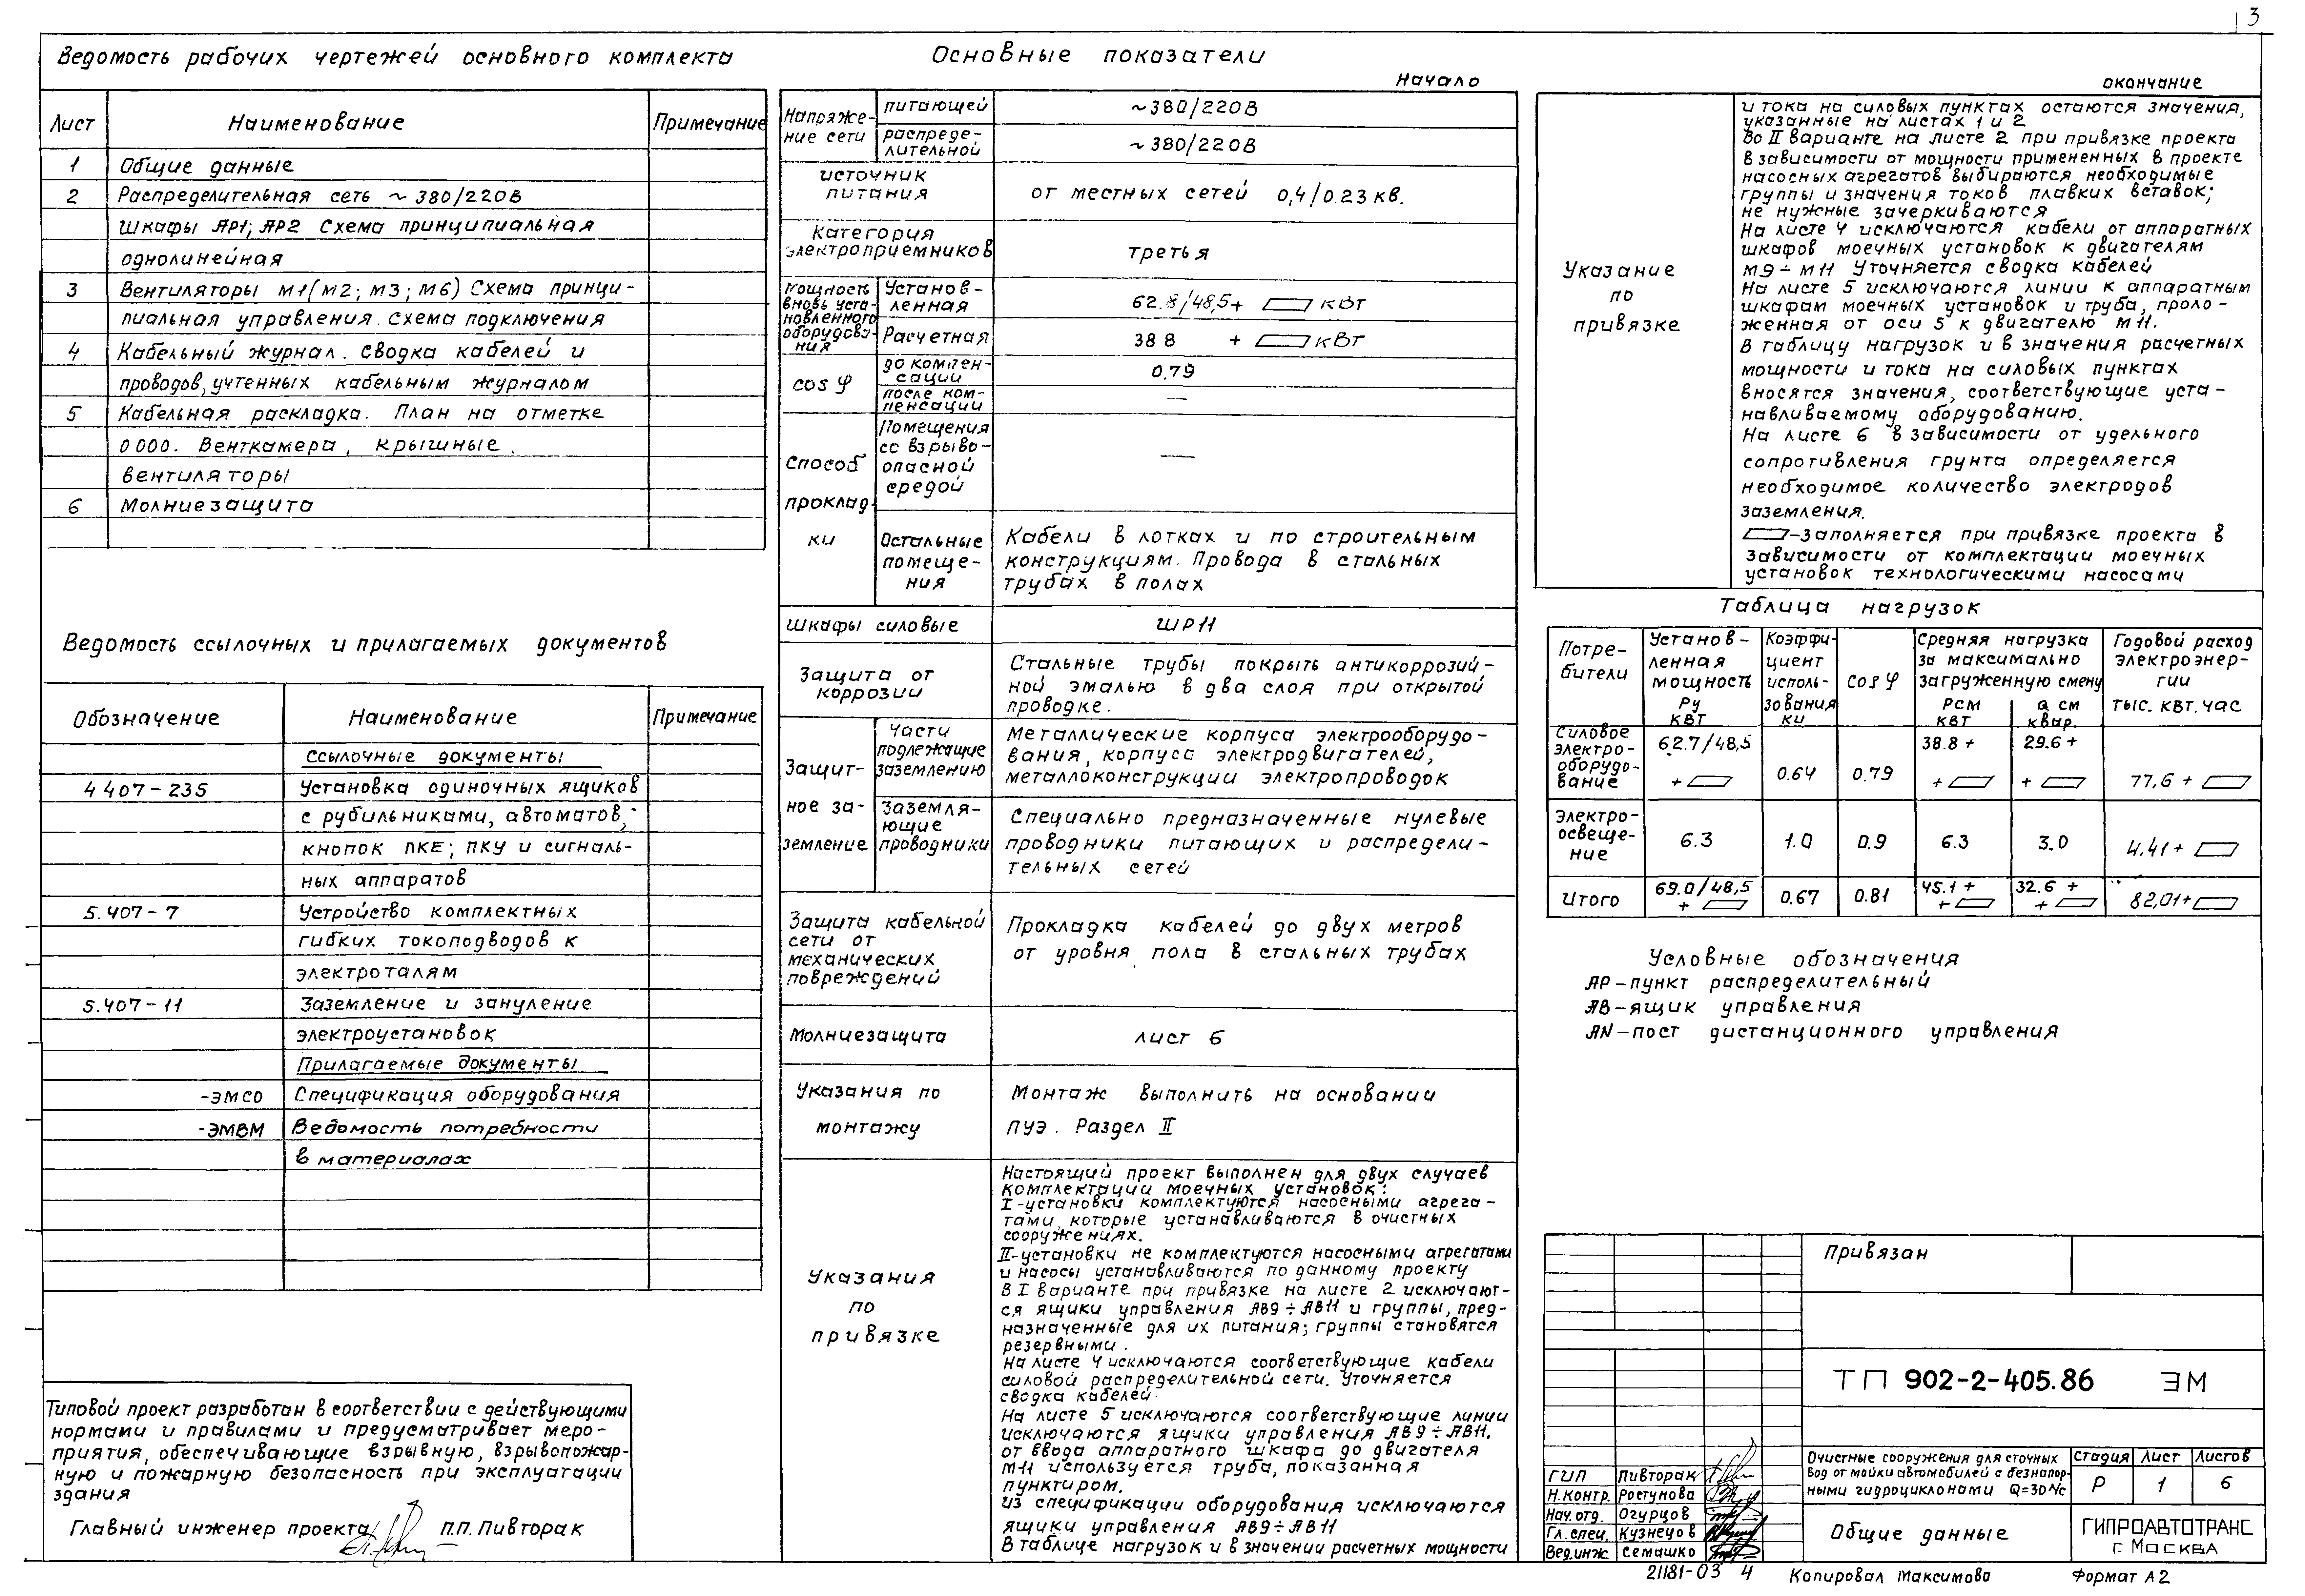 3
Ведомость рабочих чертежей основного комплекта
Лист Наименование Примечание
1 Общие данные
2 Распределительная сеть ~ 380/220В
Шкафы ЯР1; ЯР2 Схема принципиальная
однолинейная
3 Вентиляторы М1(М2; М3; М6) Схема принци-
пиальная управления. Схема подключения
4 Кабельный журнал. Сводка кабелей и
проводов, учтенных кабельным журналом
5 Кабельная раскладка. План на отметке
0 000. Венткамера, крышные
вентиляторы
6 Молниезащита
Ведомость ссылочных и прилагаемых документов
Обозначение Наименование Примечание
Ссылочные документы
4 407-235 Установка одиночных ящиков
с рубильниками, автоматов,
кнопок ПКЕ; ПКУ и сигналь-
ных аппаратов
5.407-7 Устройство комплектных
гибких токоподводов к
электроталям
5.407-11 Заземление и зануление
электроустановок
Прилагаемые документы
-ЭМСО Спецификация оборудования
-ЭМВМ Ведомость потребности
в материалах
Типовой проект разработан в соответствии с действующими
нормами и правилами и предусматривает меро-
приятия, обеспечивающие взрывную, взрывопожар-
ную и пожарную безопасность при эксплуатации
здания
Главный инженер проекта П.П. Пивторак
Основные показатели
начало
Напряже-
ние сети
питающей ~380/220В
распреде-
лительной ~380/220В
источник
питания от местных сетей 0,4/0.23 кв.
Категория
электроприемников третья
Мощность
вновь уста-
новленного
оборудова-
ния
Установ-
ленная 62.8/48,5+ кВт
Расчетная 38 8 + кВт
cos φ
до компен-
сации 0.79
после ком-
пенсации —
Способ
проклад-
ки
Помещения
со взрыво-
опасной
средой —
Остальные
помеще-
ния
Кабели в лотках и по строительным
конструкциям. Провода в стальных
трубах в полах
Шкафы силовые ШР11
Защита от
коррозии
Стальные трубы покрыть антикоррозий-
ной эмалью в два слоя при открытой
проводке.
Защит-
ное за-
земление
Части
подлежащие
заземлению
Металлические корпуса электрооборудо-
вания, корпуса электродвигателей,
металлоконструкции электропроводок
Заземля-
ющие
проводники
Специально предназначенные нулевые
проводники питающих и распредели-
тельных сетей
Защита кабельной
сети от
механических
повреждений
Прокладка кабелей до двух метров
от уровня пола в стальных трубах
Молниезащита лист 6
Указания по
монтажу
Монтаж выполнить на основании
ПУЭ. Раздел II
Указания
по
привязке
Настоящий проект выполнен для двух случаев
комплектации моечных установок:
I-установки комплектуются насосными агрега-
тами, которые устанавливаются в очистных
сооружениях.
II-установки не комплектуются насосными агрегатами
и насосы устанавливаются по данному проекту
В I варианте при привязке на листе 2 исключают-
ся ящики управления ЯВ9÷ЯВ11 и группы, пред-
назначенные для их питания; группы становятся
резервными.
На листе 4 исключаются соответствующие кабели
силовой распределительной сети. Уточняется
сводка кабелей.
На листе 5 исключаются соответствующие линии
исключаются ящики управления ЯВ9÷ЯВ11.
от ввода аппаратного шкафа до двигателя
М11 используется труба, показанная
пунктиром.
из спецификации оборудования исключаются
ящики управления ЯВ9÷ЯВ11
В таблице нагрузок и в значении расчетных мощности
окончание
Указание
по
привязке
и тока на силовых пунктах остаются значения,
указанные на листах 1 и 2
Во II варианте на листе 2 при привязке проекта
в зависимости от мощности примененных в проекте
насосных агрегатов выбираются необходимые
группы и значения токов плавких вставок;
не нужные зачеркиваются
На листе 4 исключаются кабели от аппаратных
шкафов моечных установок к двигателям
М9÷М11 Уточняется сводка кабелей
На листе 5 исключаются линии к аппаратным
шкафам моечных установок и труба, проло-
женная от оси 5 к двигателю М11.
В таблицу нагрузок и в значения расчетных
мощности и тока на силовых пунктах
вносятся значения, соответствующие уста-
навливаемому оборудованию.
На листе 6 в зависимости от удельного
сопротивления грунта определяется
необходимое количество электродов
заземления.
-заполняется при привязке проекта в
зависимости от комплектации моечных
установок технологическими насосами
Таблица нагрузок
Потре-
бители
Установ-
ленная
мощность
Ру
кВт
Коэффи-
циент
исполь-
зования
ки
cos φ
Средняя нагрузка
за максимально
загруженную смену
Рсм
кВт
Q см
квар
Годовой расход
электроэнер-
гии
тыс. кВт. час
Силовое
электро-
оборудо-
вание
62.7/48,5
+
0.64 0.79
38.8 +
+
29.6 +
+
77,6 +
Электро-
освеще-
ние
6.3 1.0 0.9 6.3 3.0 4,41+
Итого
69.0/48,5
+
0.67 0.81
45.1 +
+
32.6 +
+
82,01+
Условные обозначения
ЯР-пункт распределительный
ЯВ-ящик управления
ЯN-пост дистанционного управления
Привязан
ТП 902-2-405.86 ЭМ
ГИП Пивторак
Н.контр. Ростунова
Нач.отд. Огурцов
Гл.спец. Кузнецов
Вед.инж. Семашко
Очистные сооружения для сточных
вод от мойки автомобилей с безнапор-
ными гидроциклонами Q=30 л/с
Стадия Лист Листов
Р 1 6
Общие данные
ГИПРОАВТОТРАНС
г. Москва
21181-03 4
Копировал Максимова Формат А2